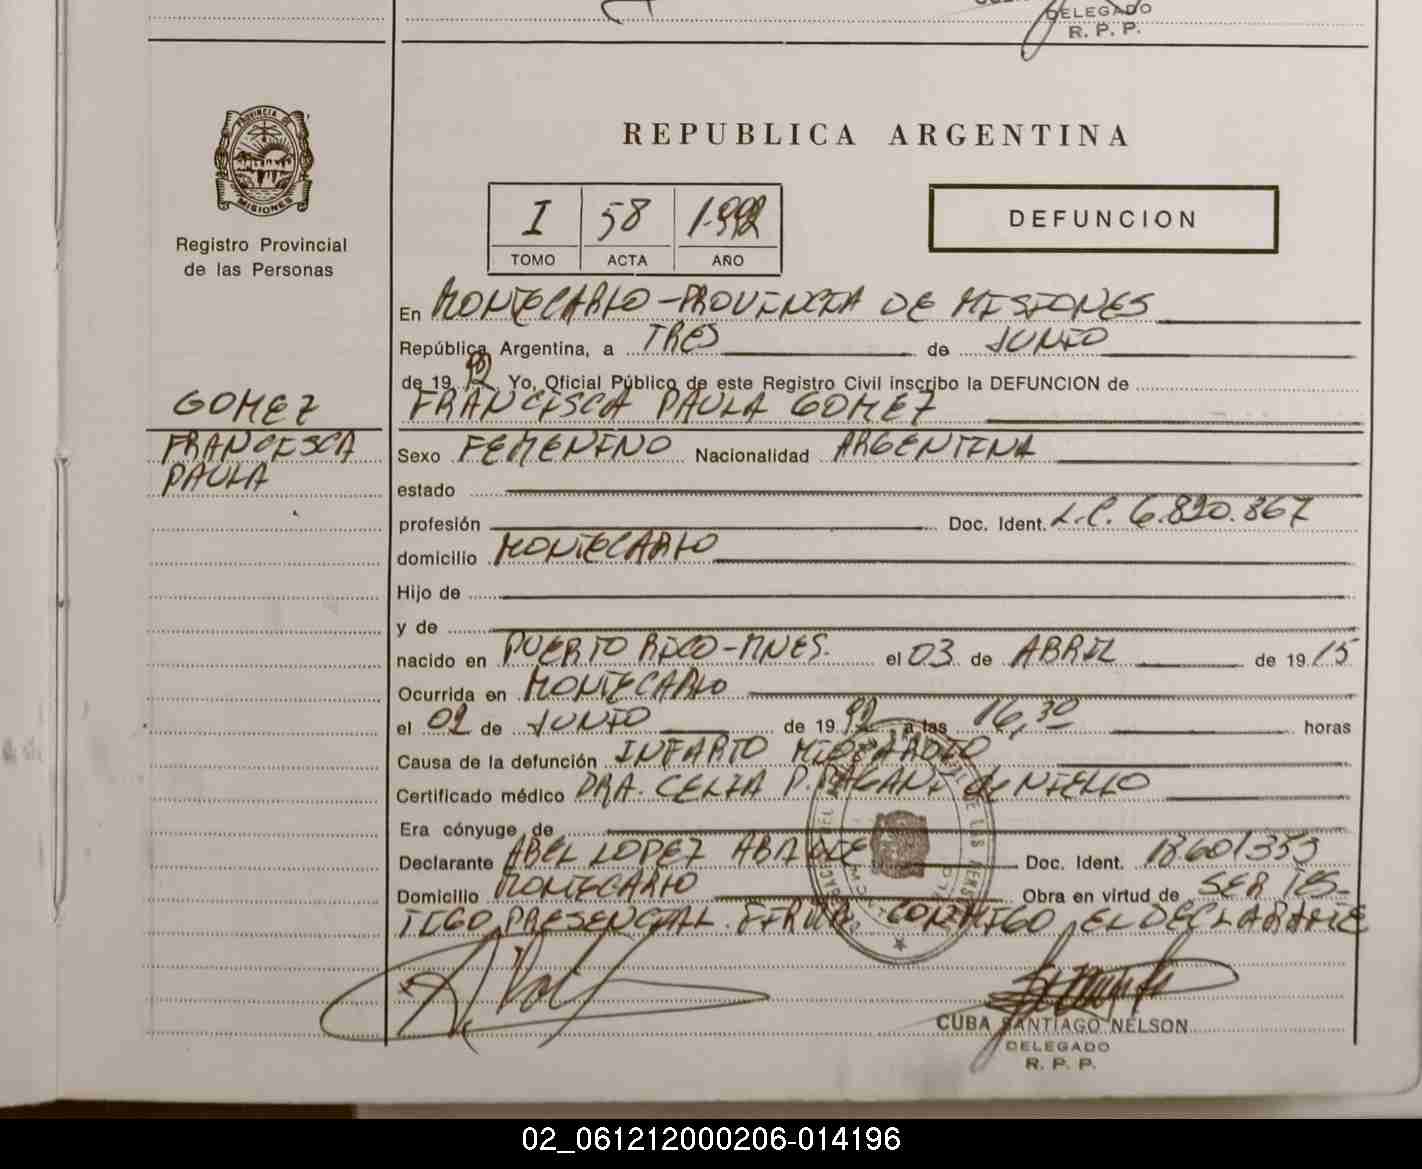 DELEGADO
R. P. P.
PROVINCIA DE
MISIONES
Registro Provincial
de las Personas
REPUBLICA ARGENTINA
I 58 1.992
TOMO ACTA AÑO
DEFUNCION
En MONTECARLO-PROVINCIA DE MISIONES
República Argentina, a TRES de JUNIO
de 19 92 Yo, Oficial Público de este Registro Civil inscribo la DEFUNCION de
GOMEZ
FRANCISCA
PAULA
FRANCISCA PAULA GOMEZ
Sexo FEMENINO Nacionalidad ARGENTINA
estado
profesión Doc. Ident. L.C. 6.820.867
domicilio MONTECARLO
Hijo de
y de
nacido en PUERTO RICO-MNES. el 03 de ABRIL de 19 15
Ocurrida en MONTECARLO
el 02 de JUNIO de 19 92 a las 16,30 horas
Causa de la defunción INFARTO MIOCARDIO
Certificado médico DRA. CELIA P. PAGANI de NIELLO
Era cónyuge de
Declarante ABEL LOPEZ Doc. Ident. 18601353
Domicilio MONTECARLO Obra en virtud de SER TES-
TIGO PRESENCIAL. FIRMA CONMIGO EL DECLARANTE
CUBA SANTIAGO NELSON
DELEGADO
R. P. P.
02_061212000206-014196